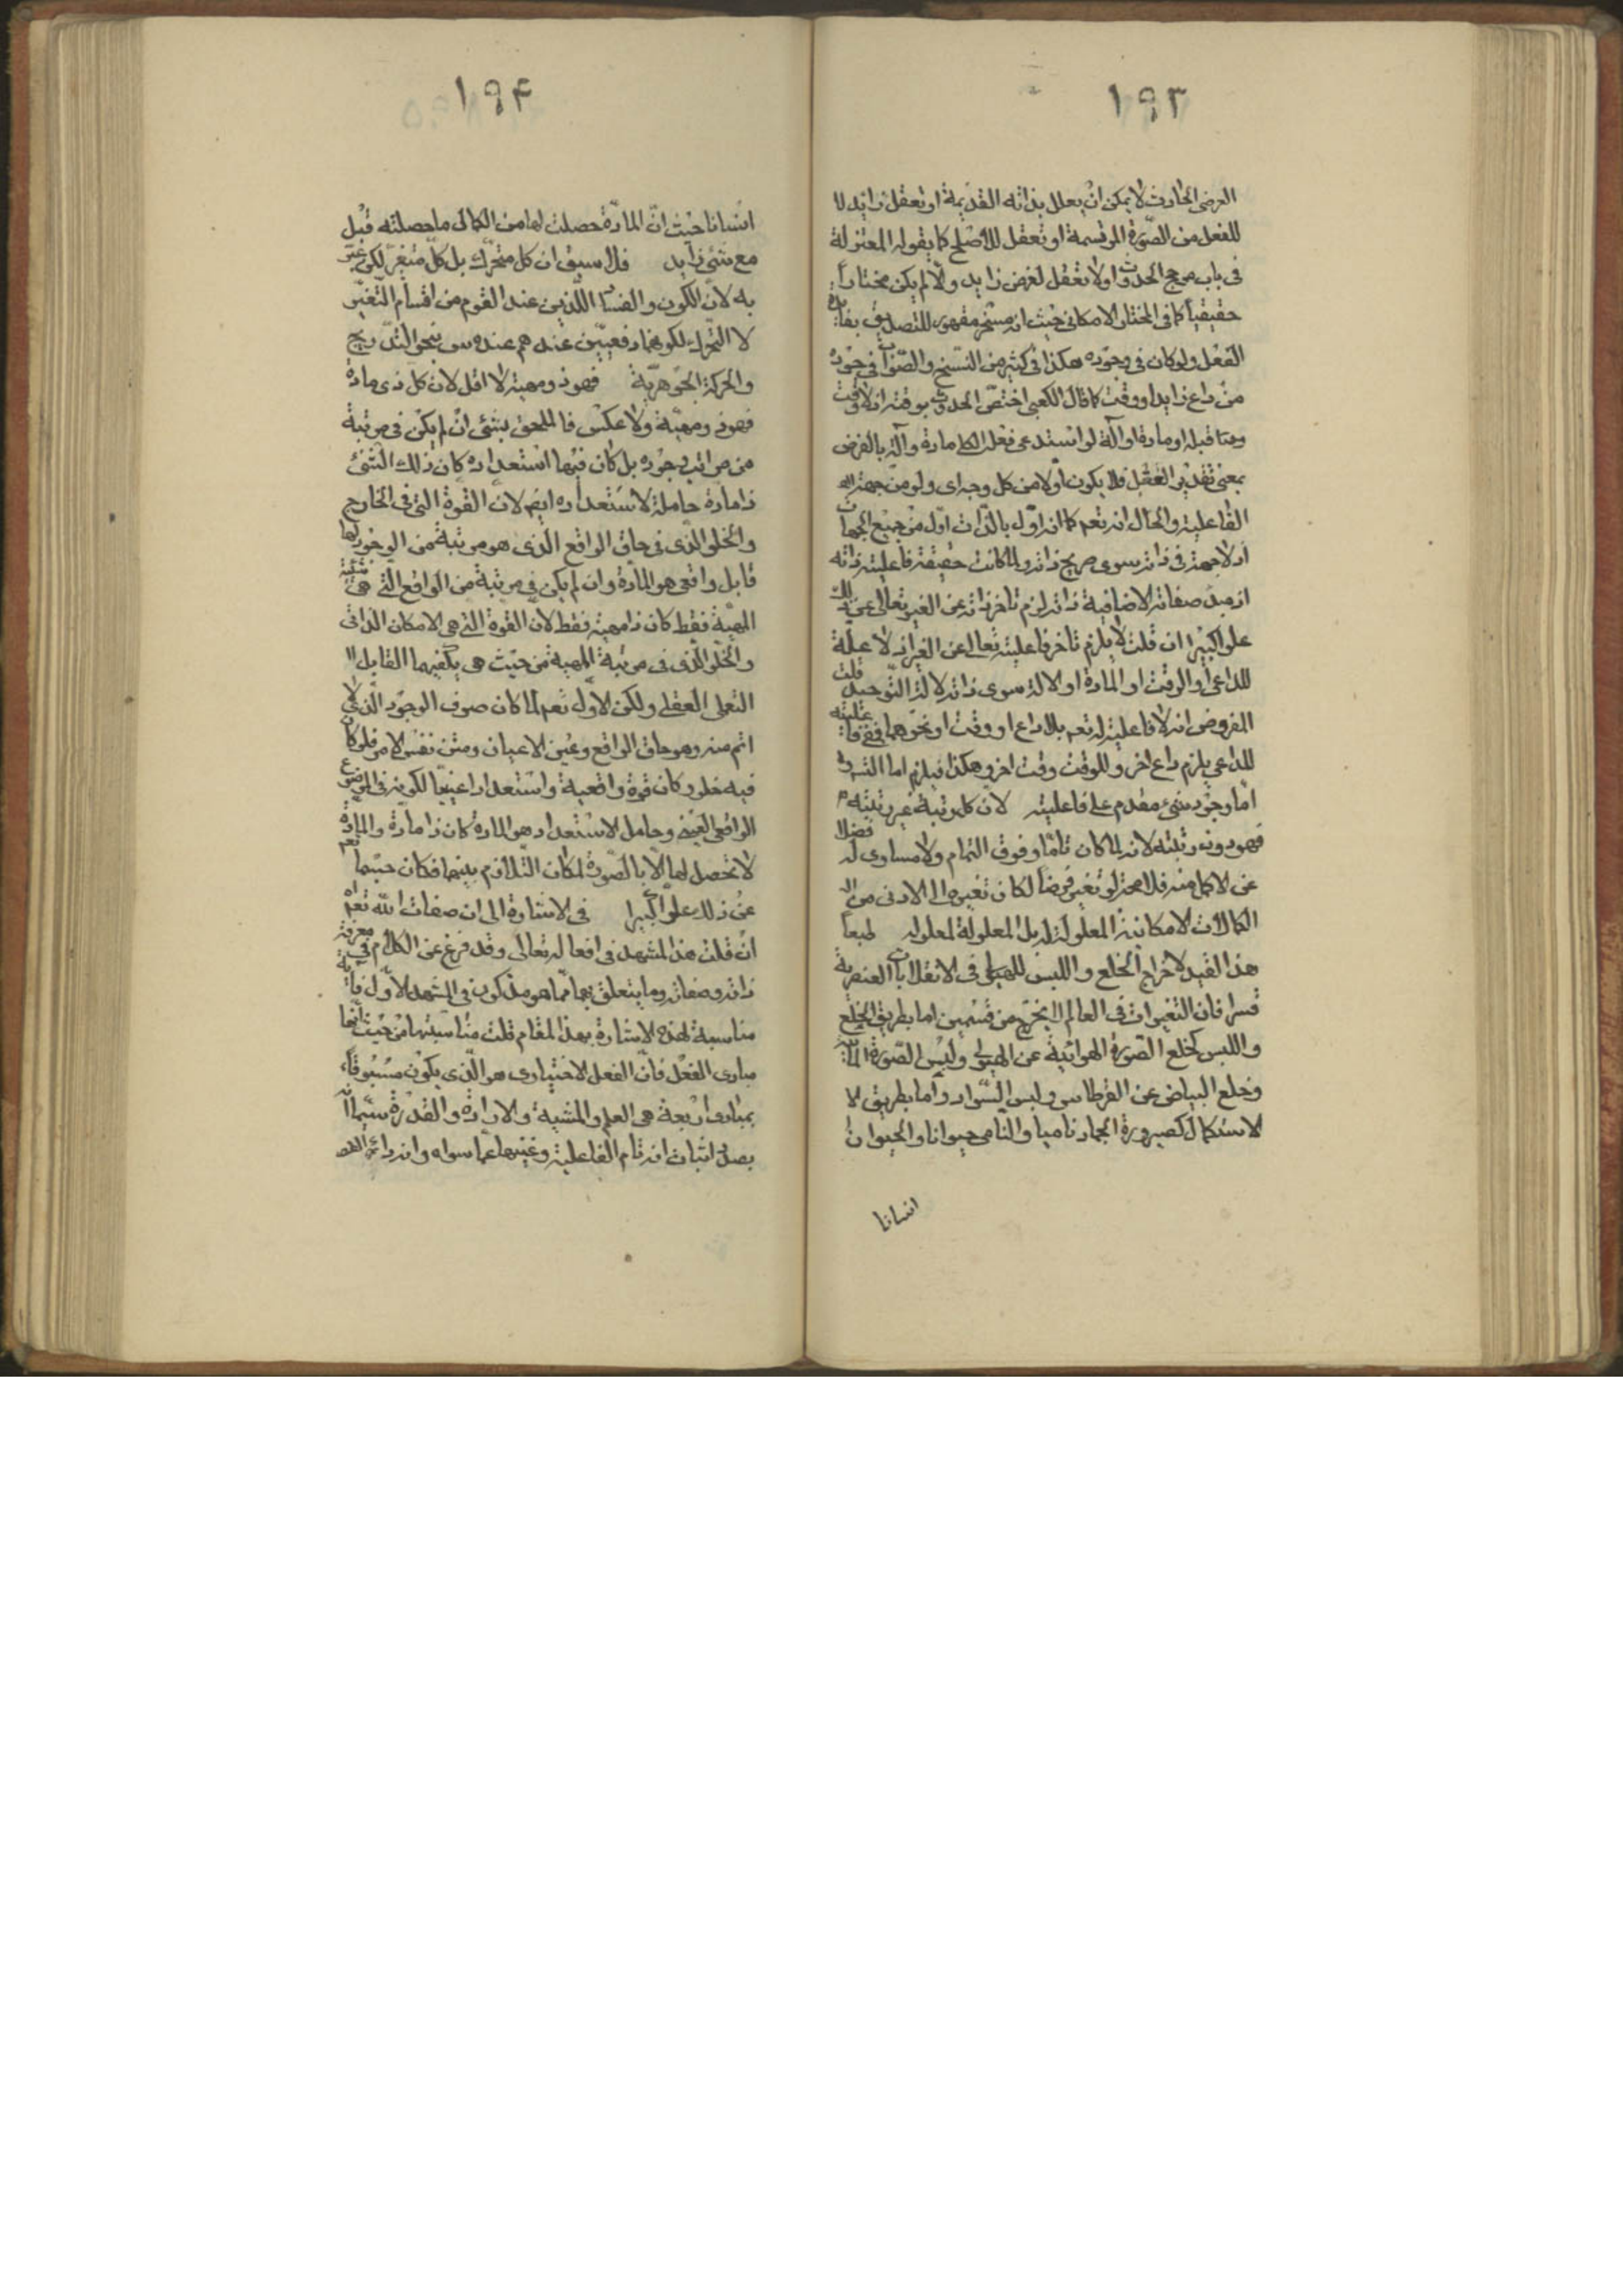 ١٩٣
العرضى الحادث لا يمكن ان يعلل بذاته القديمة او بعقل زايد لا
للفعل من الصورة المرتسمة او تعقل للاصلح كما يقوله المعتزلة
فى باب مرجح الحدوث اولا تعقل لغرض زايد والا لم يكن مختارا
حقيقيا كما فى المختار الامكانى حيث انه مسخر مقهور للتصديق بفايدة
الفعل ولو كان فى وجوده هكذا فى كثير من النسخ والصواب فى جوده
من داع زايد او وقت كما قال الكعبى اختص الحدوث بوقته اذ لا وقت
ومتا قبله او مادة او آلة لو استدعى فعله الكلى مادة وآلة بالفرض
بمعنى تقدير العقل فلا يكون اولا من كل وجه اى ولو من جهة
الفاعلية والحال انه تعم كما انه اول بالذات اول من جميع الجهات
اذ لا جهة فى ذاته سوى صريح ذاته ولما كانت حقيقة فاعليته ذاته
اذ مبدء صفاته الاضافية ذاته لزم تاخر ذاته عن الغير تعالى عن ذلك
علوا كبيرا ان قلت لا يلزم تاخر فاعليته تعالى عن الغير اذ لا علة
للداعى او الوقت او المادة او الالة سوى ذاته لادلة التوحيد قلت
المفروض انه لا فاعلية له تعم بلا داع او وقت او نحوهما ففى فاعليته
للداعى يلزم داع اخر وللوقت وقت اخر وهكذا فيلزم اما التسـ
اما وجود شىء مقدم على فاعليته لان كل مرتبة غير رتبته
فهو دون رتبته لانه لما كان تاما وفوق التمام ولا مساوى له فضلا
عن الاكمل منه فلا محة لو تغير فرضا لكان تغيره الى الادنى من
الكمالات الامكانية المعلولة له بل المعلولة لمعلوله طبعا
هذا القيد لاخراج الخلع واللبس للهيولى فى الانقلابات العنصرية
قسرا فان التغيرات فى العالم لا يخرج من قسمين اما بطريق الخلع
واللبس كخلع الصورة الهوائية عن الهيولى ولبس الصورة المائية
وخلع البياض عن القرطاس ولبس السواد واما بطريق لا
لاستكمال كصيرورة الجماد ناميا والنامى حيوانا والحيوان
انسانا
١٩۴
انسانا حيث ان المادة حصلت لها من الكمال ما حصلته قبل
مع شئ زايد فلا سيق ان كل متحرك بل كل متغير لكن عبر
به لان الكون والفساد اللذين عند القوم من اقسام التغير
لا التحرك لكونهما دفعيين عندهم عنده س بنحو التدريج
والحركة الجوهرية فهو ذو مهية لا اقل لان كل ذى مادة
فهو ذو مهية ولا عكس فالملحق بشئ ان لم يكن فى مرتبة
من مراتب وجوده بل كان فيها استعداده كان ذلك الشئ
ذا مادة حاملة لاستعداده ايضم لان القوة التى فى الخارج
والخلو الذى فى حاق الواقع الذى هو مرتبة من الوجود لها
قابل واقعى هو المادة وان لم يكن فى مرتبة من الواقع التى هى شيئية
المهية فقط كان ذا مهية فقط لان القوة التى هى الامكان الذاتى
والخلو الذى فى مرتبة المهية من حيث هى يكفيهما القابل ا
التعملى العقلى ولكن الاول تعم لما كان صرف الوجود الذى لا
اتم منه وهو حاق الواقع وعين الاعيان ومتن نفس الامر فلو كان
فيه خلو كان قوة واقعية واستعدادا عينيا لكونه فى الموضوع
الواقعى العينى وحامل الاستعداد هو المادة كان ذا مادة والمادة
لا تحصل لها الا بالصورة لمكان التلازم بينهما فكان جسما تعم
عن ذلك علوا كبيرا فى الاشارة الى ان صفات الله تعم
ان قلت هذا المشهد فى افعاله تعالى وقد فرغ عن الكلام فى معرفة
ذاته وصفاته وما يتعلق بهما مما هو مذكور فى المشهد الاول فاية
مناسبة لهذه الاشارة بهذا المقام قلت مناسبتها من حيث انها
مبادى الفعل فان الفعل الاختيارى هو الذى يكون مسبوقا
بمبادى اربعة هى العلم والمشية والارادة والقدرة سيما انه
بصدد اثبات انه تام الفاعلية وغنيها عما سواه وانه دائم